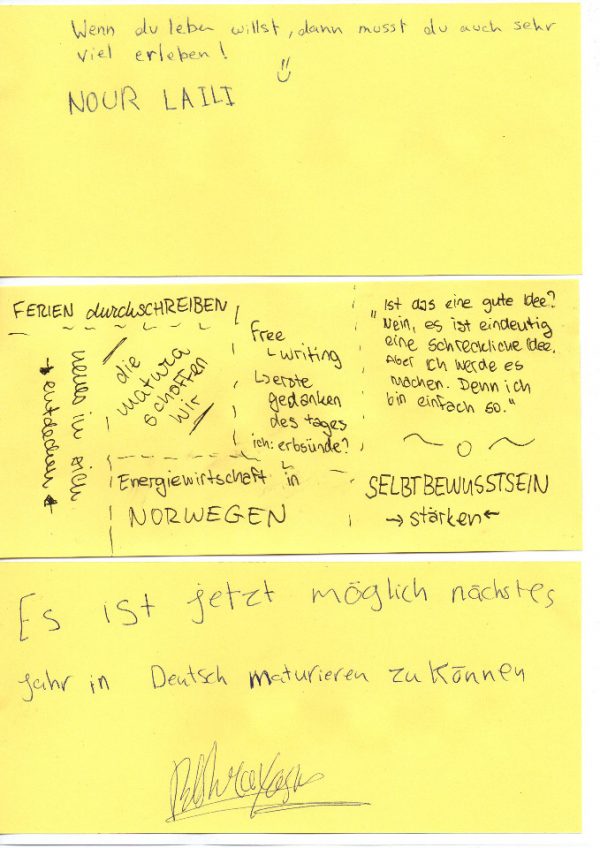 Wenn du leben willst, dann musst du auch sehr
viel erleben!
NOUR LAILI
FERIEN durchSCHREIBEN
neues in sich
→ entdecken ←
die
matura
schaffen
wir
Free
↳ writing
↳ erste
gedanken
des tages
ich: erbsünde?
Energiewirtschaft in
NORWEGEN
"Ist das eine gute Idee?
Nein, es ist eindeutig
eine schreckliche Idee.
Aber ich werde es
machen. Denn ich
bin einfach so."
SELBTBEWUSSTSEIN
→ stärken ←
Es ist jetzt möglich nächstes
Jahr in Deutsch maturieren zu können